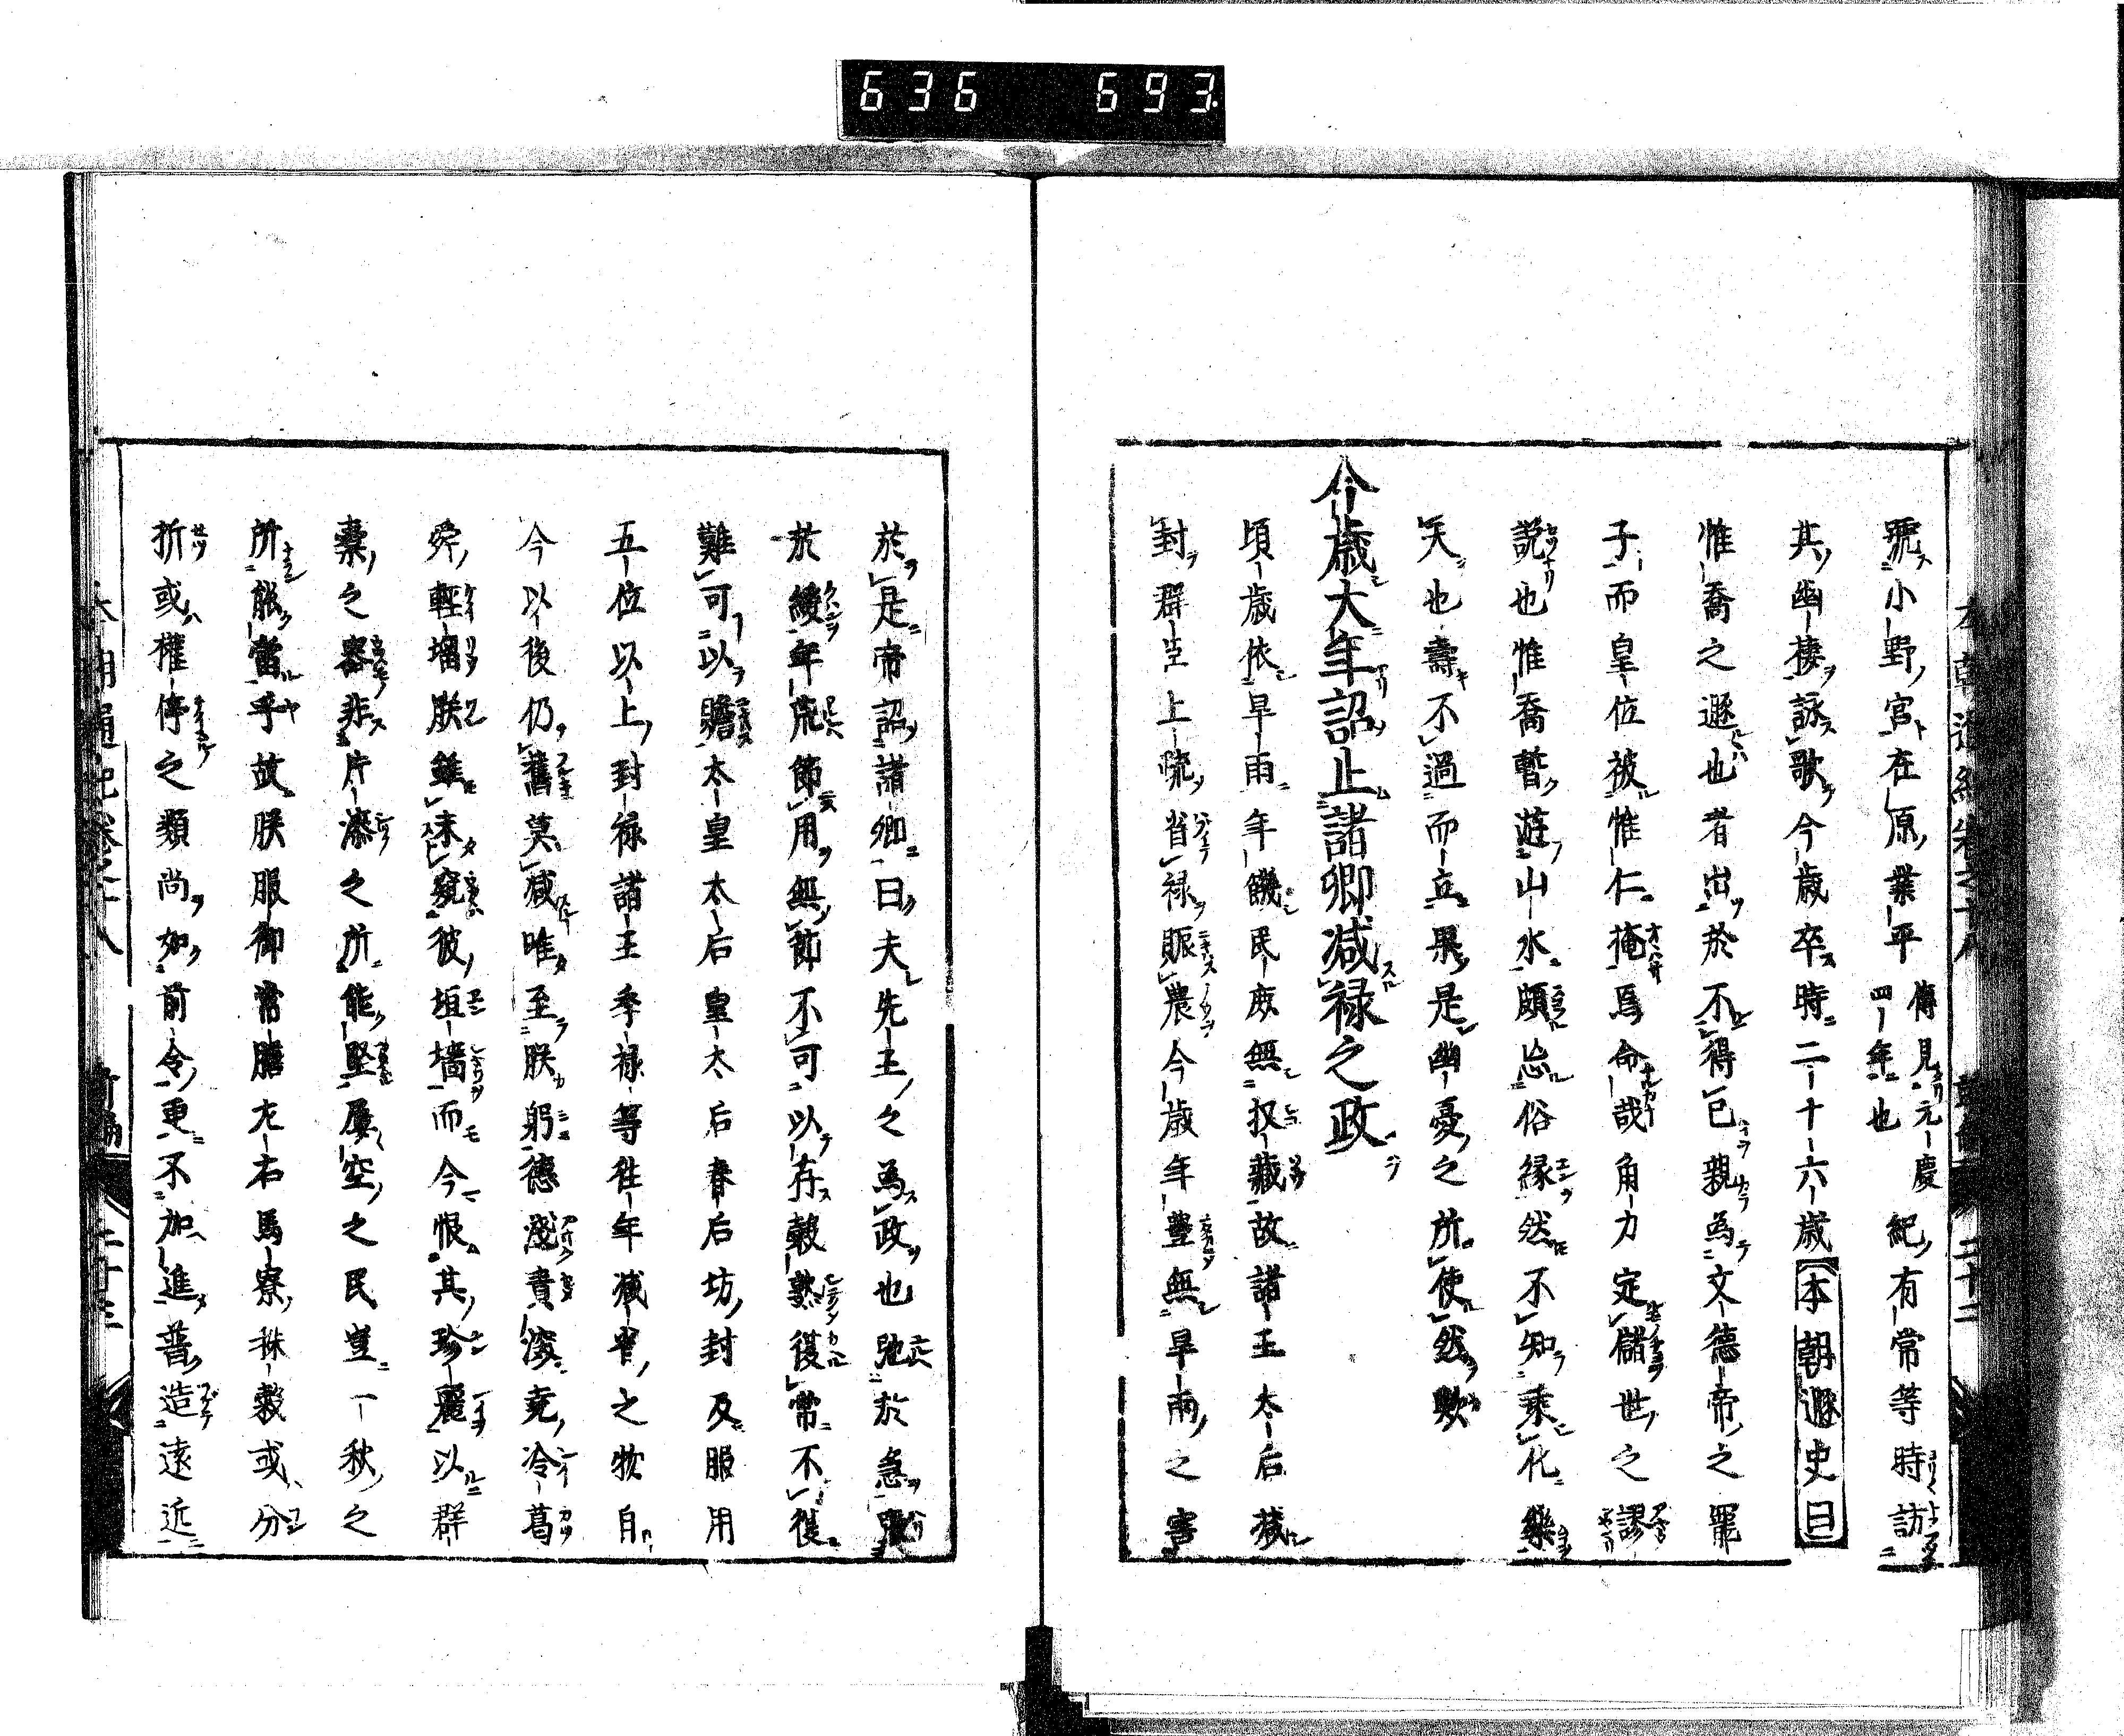 636 693
號小野宮在原業平傳見元慶四年也紀有常等時訪
其幽棲詠歌今歳卒時二十六歳本朝遯史曰
惟喬之遯也者出於不得已親為文德帝之寵
子而皇位被惟仁掩焉命哉角力定儲世之謬
説也惟喬暫遊山水頗忘俗縁然不知乘化樂
天也壽不過而立果是幽憂之所使然歟
今歳大年詔止諸卿减禄之政
頃歳依旱雨年饑民庶無收藏故諸王太后减
封群臣上號省禄賑農今歳年豐無旱雨之害
於是帝詔諸卿曰夫先王之為政也弛於急張
於緩年荒節用無節不可以存穀熟復常不復
難可以贍太皇太后皇太后春后坊封及服用
五位以上封禄諸王季禄等往年减省之物自
今以後仍舊莫减唯至朕躬德淺責深堯冷葛
舜輕塯朕雖未窺彼垣墻而今恨其珍麗以群
棄之器非片漆之所能堅屢空之民豈一秋之
所脹當乎故朕服御常膳左右馬寮秣穀或分
折或權停之類尚如前令更不加進普造遠近